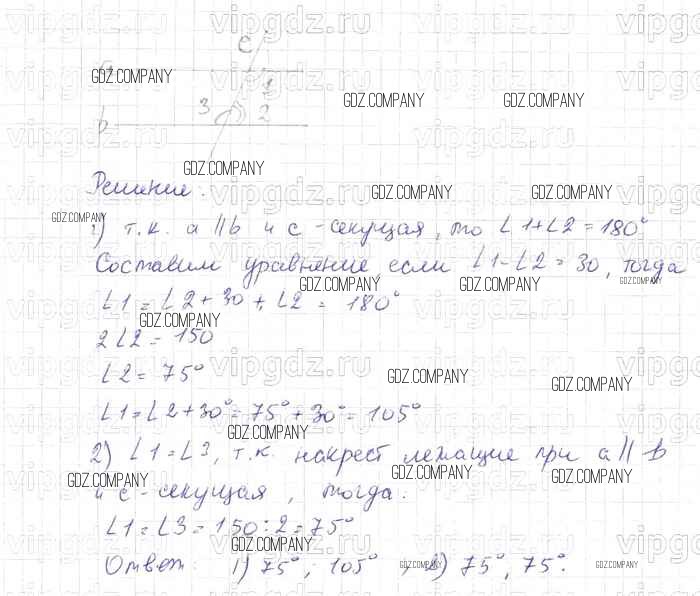 c
a
1
3 2
b
Решение:
1) т.к. a || b и c - секущая, то ∠1+∠2 = 180°
Составим уравнение если ∠1-∠2 = 30, тогда
∠1 = ∠2 + 30 + ∠2 = 180°
2∠2 = 150
∠2 = 75°
∠1 = ∠2 + 30° = 75° + 30° = 105°
2) ∠1 = ∠3, т.к. накрест лежащие при a || b
и c - секущая, тогда:
∠1 = ∠3 = 150 : 2 = 75°
Ответ: 1) 75°; 105°, 2) 75°, 75°.
GDZ.COMPANY
vipgdz.ru